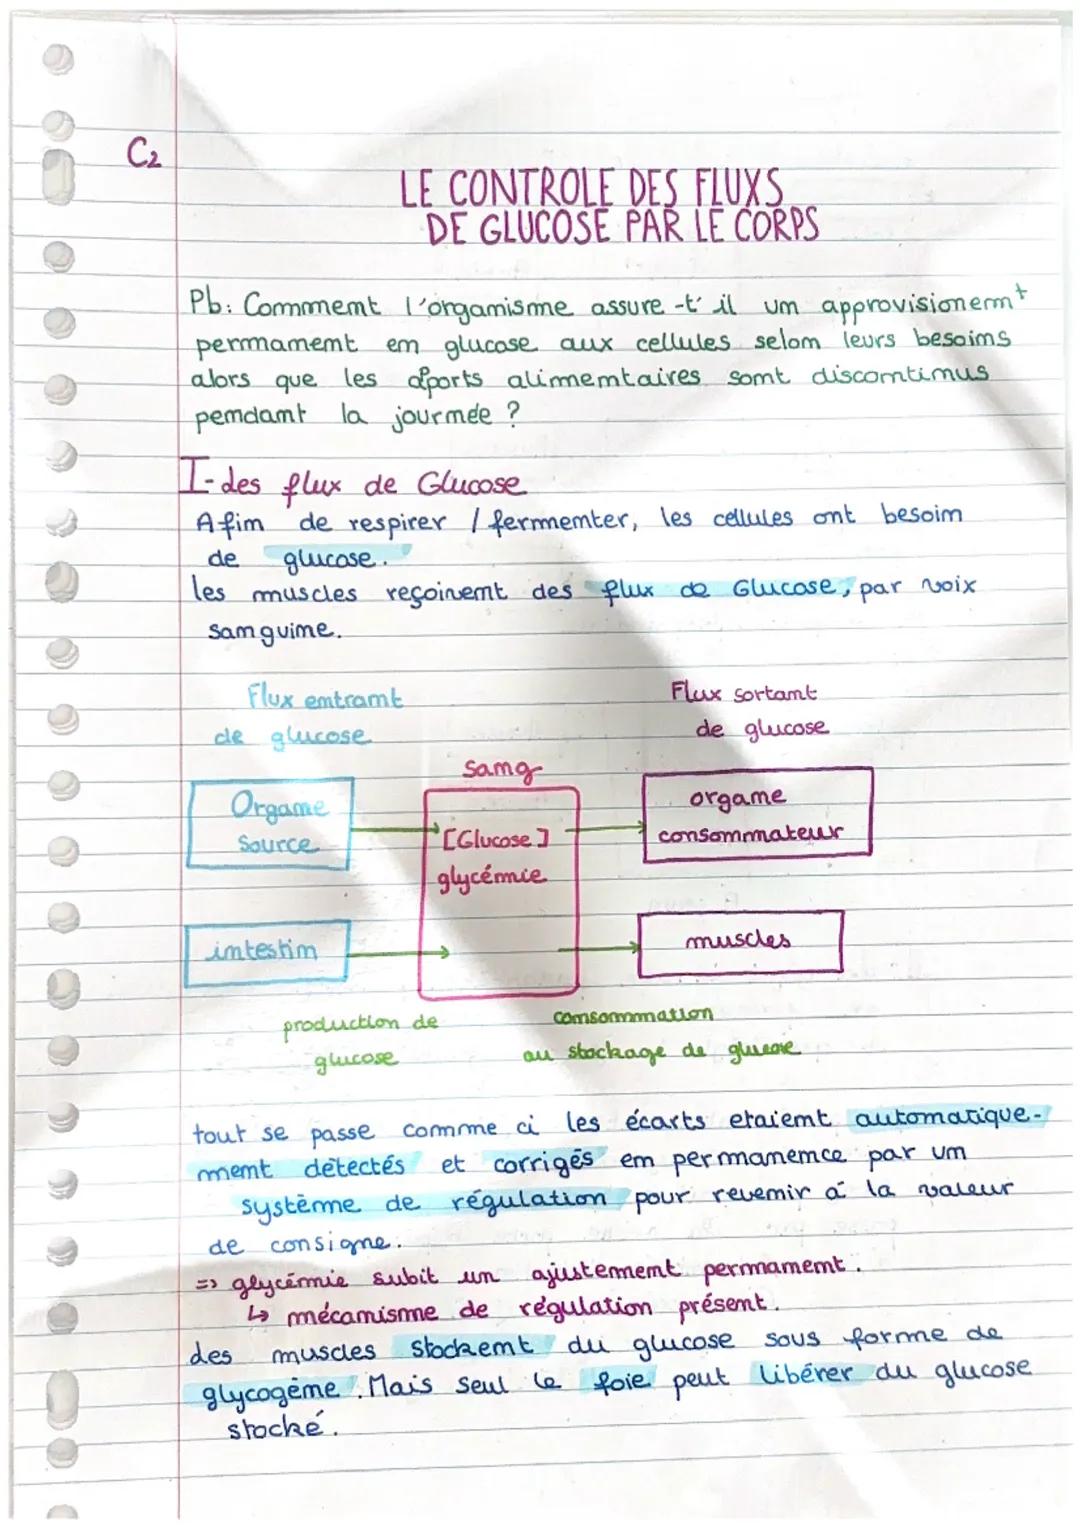 C2
LE CONTROLE DES FLUXS
DE GLUCOSE PAR LE CORPS
Pb: Comment l'organisme assure-t'il un approvisionemt
permanent en glucose aux cellules selon leurs besoins
alors que les aports alimentaires sont discontinus
pendant la journée ?
I- des flux de Glucose
Afin de respirer / fermenter, les cellules ont besoin
de glucose.
les muscles reçoivent des flux de Glucose, par voix
sanguine.
Flux entrant
de glucose
Flux sortant
de glucose
Sang
Organe
Source
[Glucose]
glycémie
organe
consommateur
intestin
muscles
production de
glucose
consommation
au stockage de glucose
tout se passe comme ci les écarts etaient automatique-
ment détectés et corrigés en permanence par un
système de régulation pour revenir à la valeur
de consigne.
=> glycémie subit un ajustement permanent.
↳ mécanisme de régulation présent.
des muscles stockent du glucose sous forme de
glycogène. Mais seul le foie peut libérer du glucose
stocké.